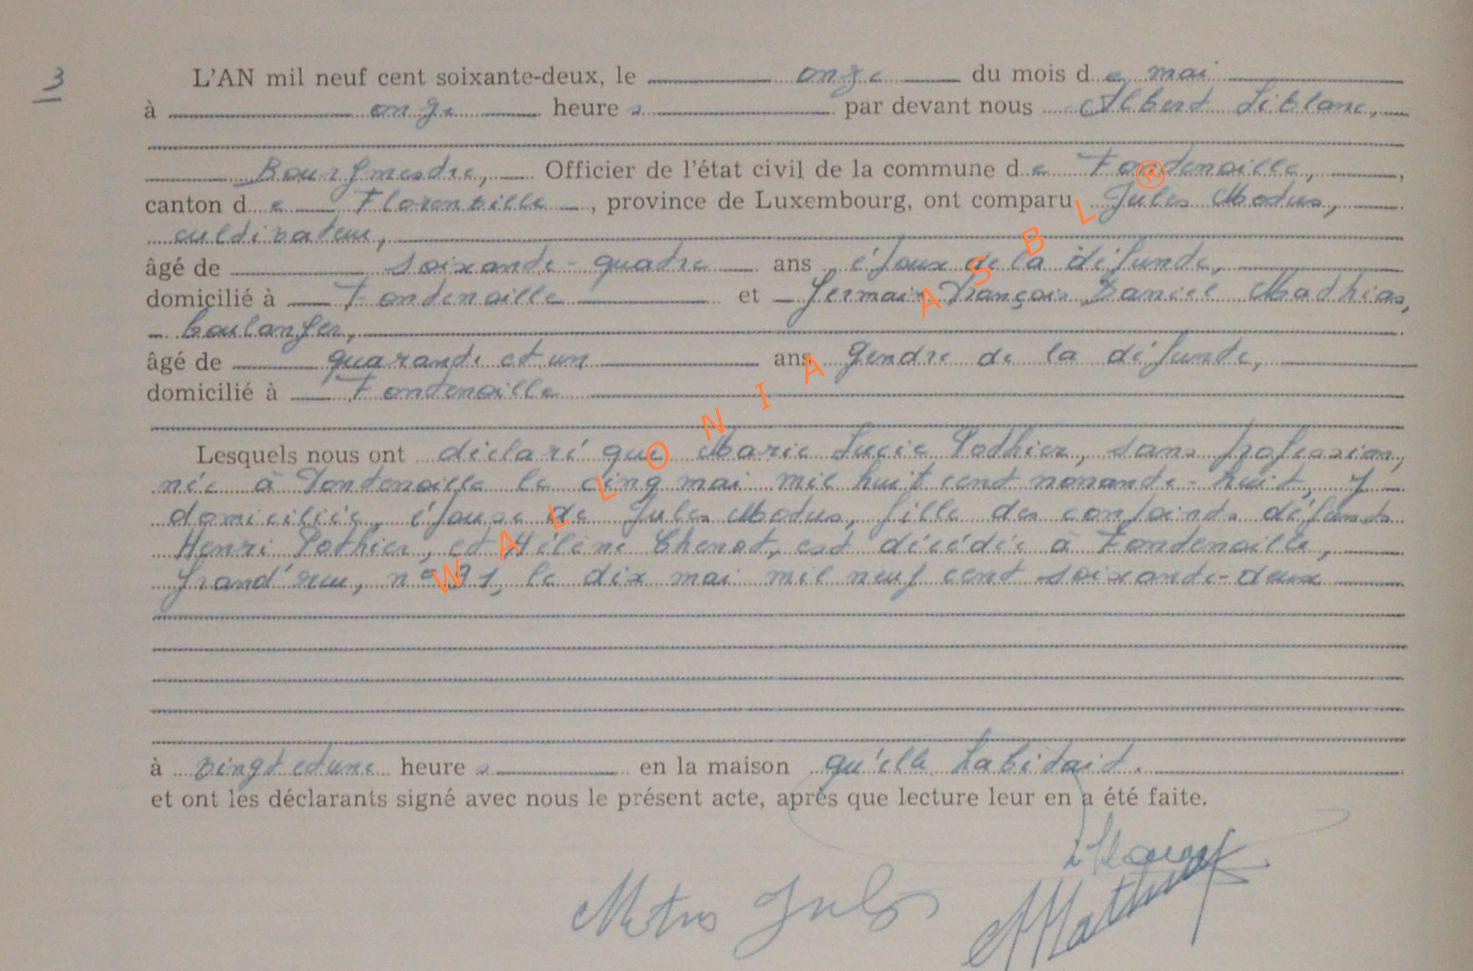 3
L'AN mil neuf cent soixante-deux, le onze du mois de mai
à onze heures par devant nous Albert Leblanc,
Bourgmestre, Officier de l'état civil de la commune de Fontenoille,
canton de Florenville, province de Luxembourg, ont comparu Jules Motus,
cultivateur,
âgé de soixante-quatre ans époux de la défunte,
domicilié à Fontenoille et Germain François Daniel Mathias,
boulanger,
âgé de quarante et un ans gendre de la défunte,
domicilié à Fontenoille
Lesquels nous ont déclaré que Marie Lucie Pothier, sans profession,
née à Fontenoille le cinq mai mil huit cent nonante-huit, y
domiciliée, épouse de Jules Motus, fille des conjoints défunts
Henri Pothier, et Hélène Chenot, est décédée à Fontenoille,
grand'rue, n° 91, le dix mai mil neuf cent soixante-deux
à vingt et une heures en la maison qu'elle habitait.
et ont les déclarants signé avec nous le présent acte, après que lecture leur en a été faite.
Motus Jules
Mathias
WALLONIA ASBL ®